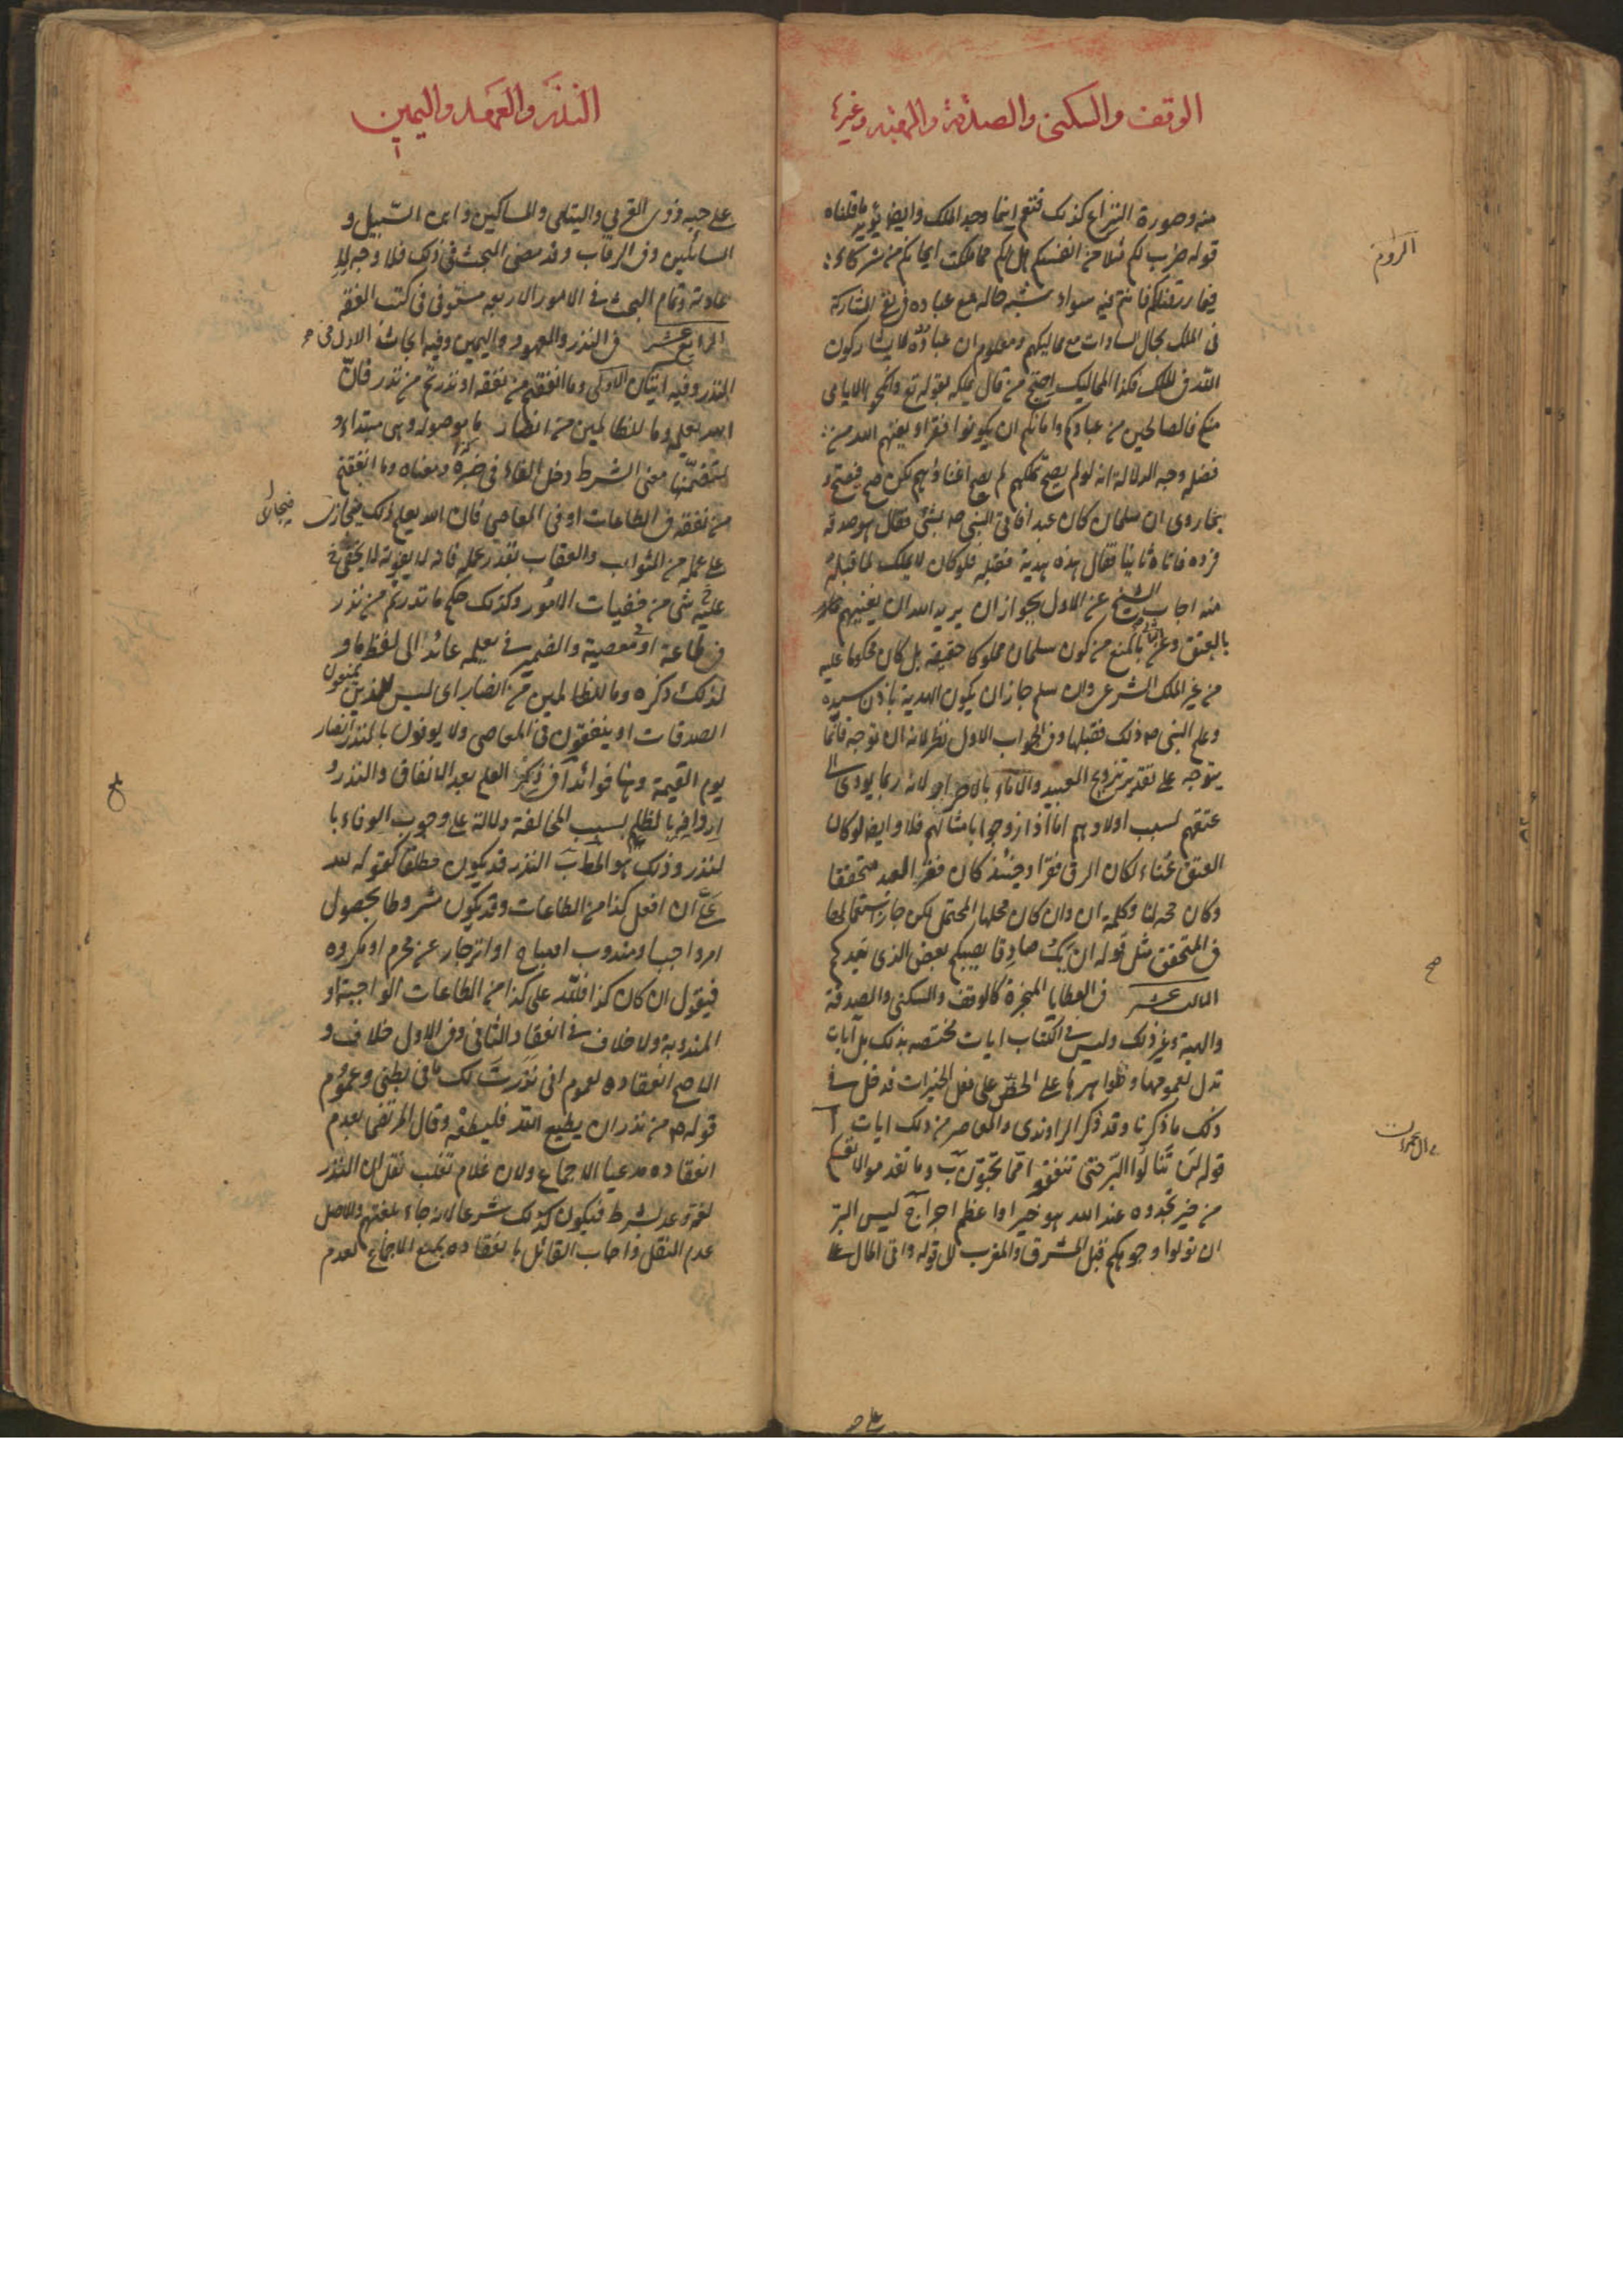 الوقف والسكنى والصدقة والهبة وغيرها
منه وصورة النزاع كذلك فتعم اينما وجد الملك وايضا يؤيد ما قلناه
قوله ضرب لكم مثلا من انفسكم هل لكم مما ملكت ايمانكم من شركاء
فيما رزقناكم فانتم فيه سواء شبه حاله مع عباده في نفى المشاركة
فى الملك بحال السادات مع مماليكهم ومعلوم ان عباده لا يشاركون
الله فى الملك فكذا المماليك احتج من قال يملك بقوله تع وانكحوا الايامى
منكم والصالحين من عبادكم وامائكم ان يكونوا فقراء يغنهم الله من
فضله وجه الدلالة انه لو لم يصح تملكهم لم يصح اغناؤهم لكن صح فيصح و
بما روى ان سلمان كان عبدا فاتى النبى ص بشئ فقال هو صدقة
فرده فاتاه ثانيا فقال هذه هدية فقبله فلو كان لا يملك لما قبله
منه اجاب الشيخ عن الاول بجواز ان يريد الله ان يغنيهم
بالعتق وعن الثانى بالمنع من كون سلمان مملوكا حقيقة بل كان محكوما عليه
من غير الملك الشرعى وان سلم جاز ان يكون الهدية باذن سيده
وعلم النبى ص ذلك فقبلها وفى الجواب الاول نظر لانه ان توجه فانما
يتوجه على تقدير تزويج العبيد والاماء بالاحرار لانه ربما يودى الى
عتقهم بسبب اولادهم اما اذا ازوجوا بامثالهم فلا وايضا لو كان
العتق غناء لكان الرق فقرا وحينئذ كان فقر العبد متحققا
وكان محله لنا وكلمة ان وان كان محلها المحتمل لكن جاز استعمالها
فى المتحقق مثل قوله ان يك صادقا يصبكم بعض الذى يعدكم
الثالث عشر فى العطايا المنجزة كالوقف والسكنى والصدقة
والهبة وغير ذلك وليس فى الكتاب ايات مختصه بذلك بل ايات
تدل بعمومها وظواهرها على الحض على فعل الخيرات فدخل فى
ذلك ما ذكرنا وقد ذكر الراوندى والمعاصر من ذلك ايات ا
قوله لن تنالوا البر حتى تنفقوا مما تحبون ب وما تقدموا لانفسكم
من خير تجدوه عند الله هو خيرا واعظم اجرا ج ليس البر
ان تولوا وجوهكم قبل المشرق والمغرب الى قوله واتى المال على
الروم
صح
ال عمران
على حبه
النذر والعهد واليمين
على حبه ذوى القربى واليتامى والمساكين وابن السبيل و
السائلين وفى الرقاب وقد مضى البحث فى ذلك فلا وجه لا
عادته وتمام البحث فى الامور الاربعه مستوفى فى كتب الفقه
الرابع عشر فى النذر والعهود واليمين وفيه ابحاث الاول فى
النذر وفيه ايتان الاولى وما انفقتم من نفقه او نذرتم من نذر فان
الله يعلمه وما للظالمين من انصار ما موصوله وهى مبتداء و
لتضمنها معنى الشرط دخل الفاء فى خبره ومعناه وما انفقتم
من نفقه فى الطاعات او فى المعاصى فان الله يعلم ذلك فيجازى
على عمله من الثواب والعقاب بقدر عمله فانه لا يخفى
عليه شى من خفيات الامور وكذلك حكم ما نذرتم من نذر
فى طاعة او معصية والضمير فى يعلمه عائد الى لفظ ما و
لذلك ذكره وما للظالمين من انصار اى ليس للذين يمنعون
الصدقات او ينفقون فى المعاصى ولا يوفون بالنذر انصار
يوم القيمة وهنا فوائد ا فى ذكر العلم بعد الانفاق والنذر و
اردافه بالظلم بسبب المخالفة دلالة على وجوب الوفاء با
لنذر وذلك هو المطلب ب النذر قد يكون مطلقا كقوله لله
على ان افعل كذا من الطاعات وقد يكون مشروطا بحصول
امر واجب او مندوب او مباح او انزجار عن محرم او مكروه
فيقول ان كان كذا فلله على كذا من الطاعات الواجبة او
المندوبة ولا خلاف فى انعقاد الثانى وفى الاول خلاف و
الاصح انعقاده لعموم انى نذرت لك ما فى بطنى وعموم
قوله ص من نذر ان يطيع الله فليطعه وقال المرتضى بعدم
انعقاده مدعيا الاجماع ولان غلام ثعلب نقل ان النذر
لغة وعد بشرط فيكون كذلك شرعا لانه جاء بلغتهم والاصل
عدم النقل واجاب القائل بانعقاده بمنع الاجماع لعدم
فيجازى